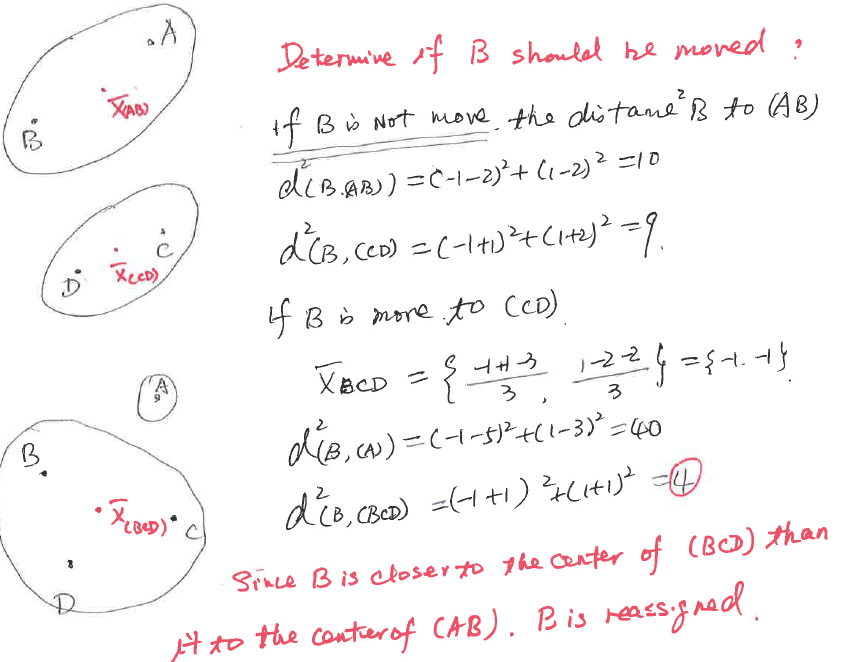 Determine if B should be moved ?
A
X̄(AB)
B
if B is Not move. the distance² B to (AB)
d²(B.(AB)) = (-1-2)² + (1-2)² = 10
C
X̄(CD)
D
d²(B, (CD)) = (-1+1)² + (1+2)² = 9.
If B is move to (CD).
X̄BCD = { -1+1-3 / 3 , 1-2-2 / 3 } = {-1. -1}.
A
d²(B, (A)) = (-1-5)² + (1-3)² = 40
B
d²(B, (BCD)) = (-1+1)² + (1+1)² = 4
X̄(BCD)
C
D
Since B is closer to the center of (BCD) than
it to the center of (AB). B is reassigned.